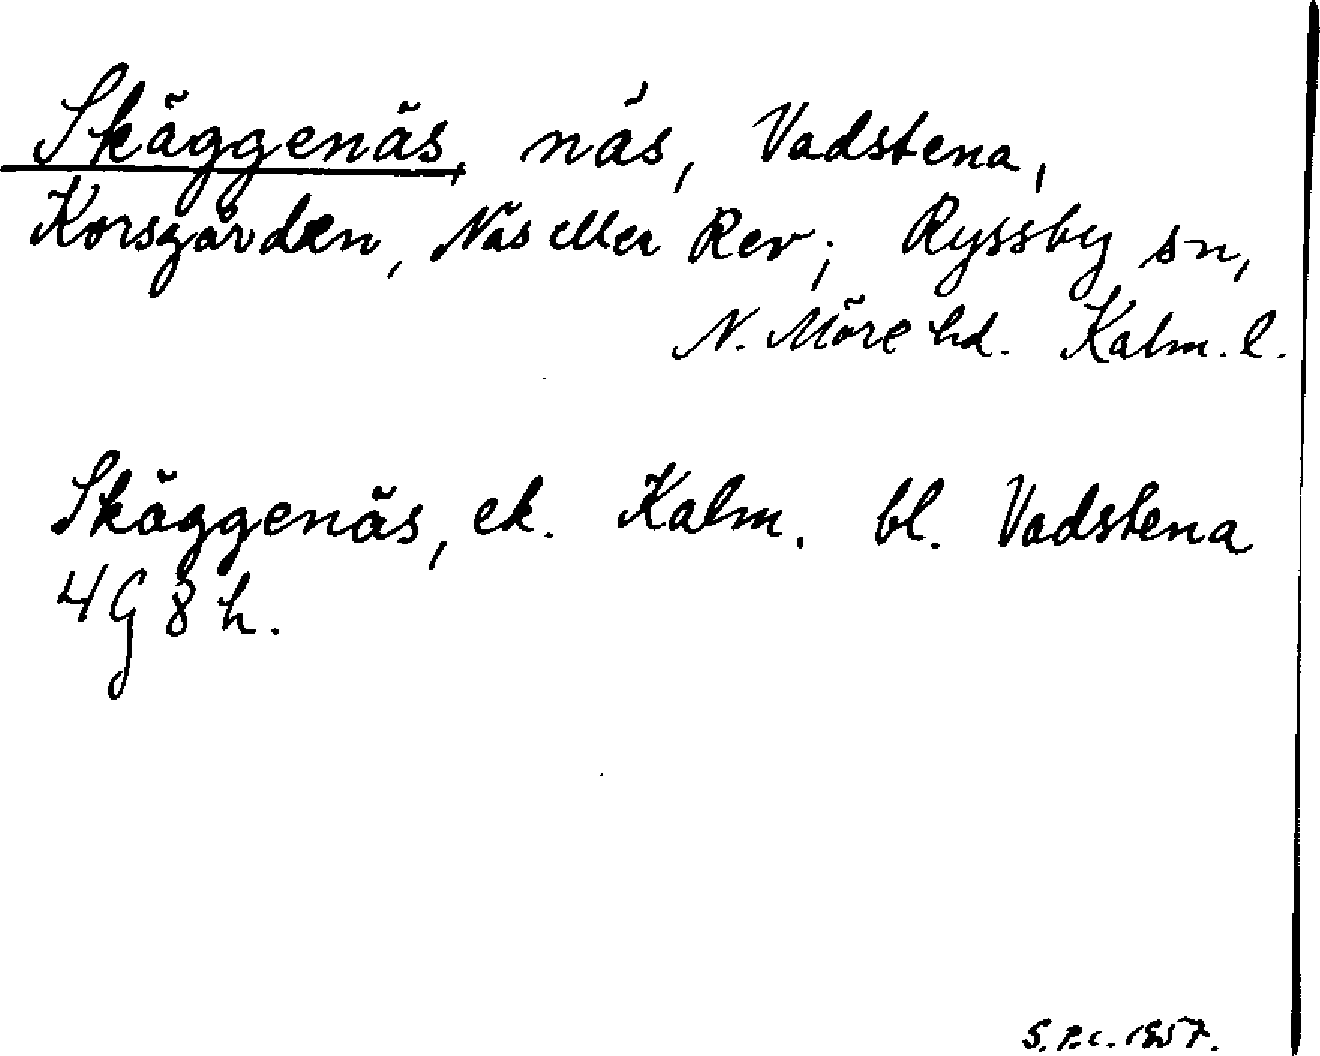 Skäggenäs, näs, Vadstena,
Korsgården, Näs eller Rev; Ryssby sn,
N. Möre hd. Kalm. l.
Skäggenäs, ek. Kalm. bl. Vadstena
4G 8h.
1957.